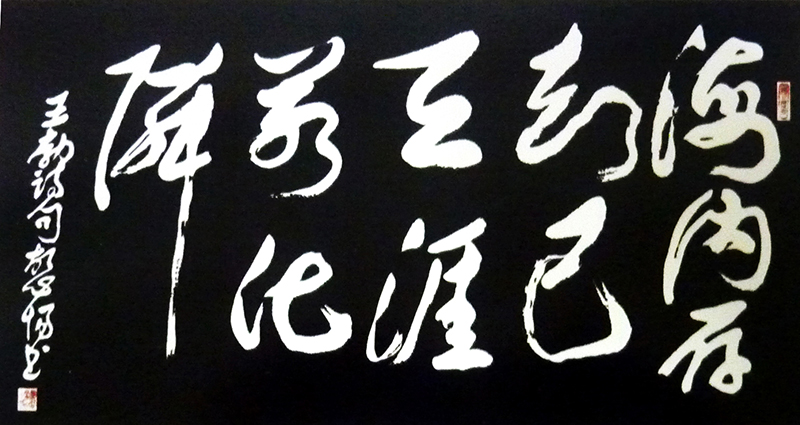 海内存
知己
天涯
若比
隣
王勃詩句书